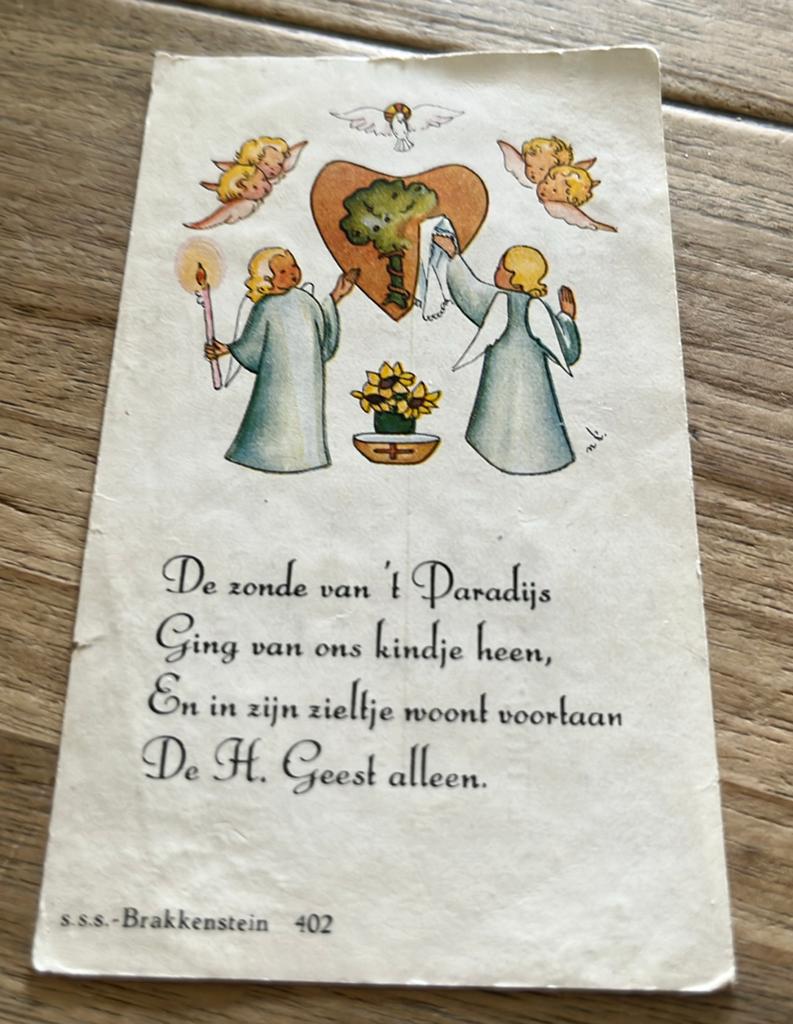 De zonde van 't Paradijs
Ging van ons kindje heen,
En in zijn zieltje woont voortaan
De H. Geest alleen.
s.s.s.-Brakkenstein 402